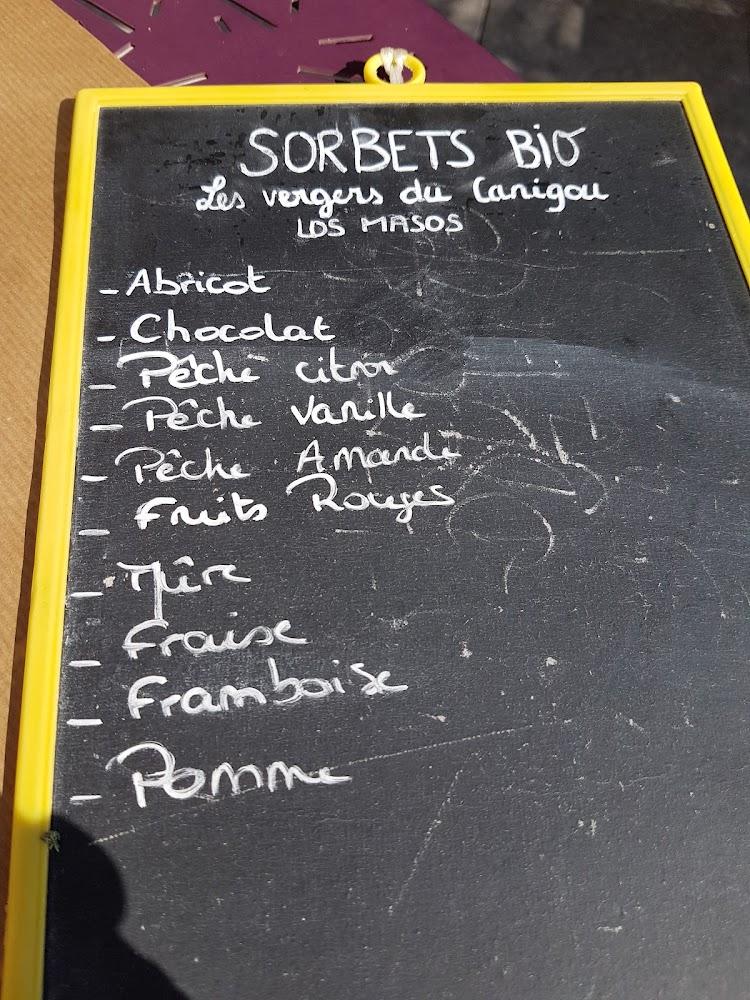 SORBETS BIO
Les vergers du Canigou
LOS MASOS
- Abricot
- Chocolat
- Pêche citron
- Pêche Vanille
- Pêche Amande
- Fruits Rouges
- Mûre
- Fraise
- Framboise
- Pomme